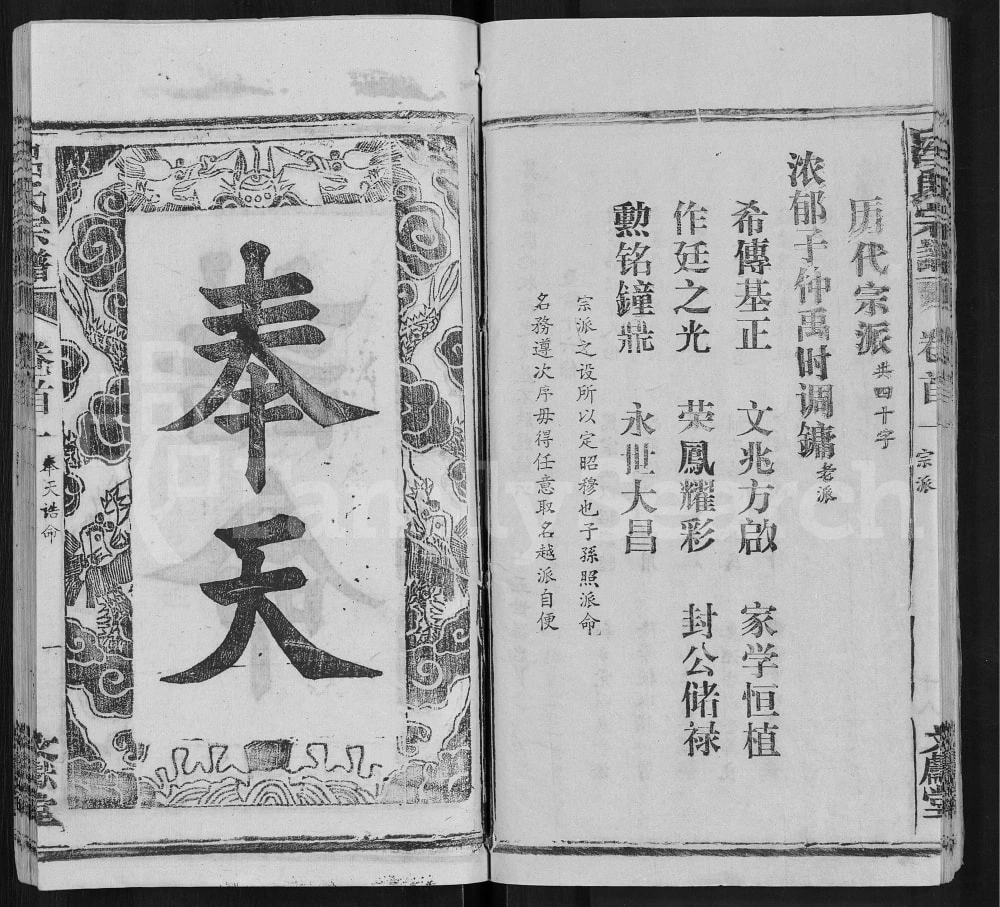 呂氏宗譜 卷首 宗派 文獻堂
历代宗派 共四十字
浓郁子仲禹时调鏞 老派
希傳基正 文兆方啟 家学恒植
作廷之光 荣鳳耀彩 封公储禄
勲铭鐘鼎 永世大昌
宗派之设所以定昭穆也子孫照派命
名務遵次序毋得任意取名越派自便
奉天
呂氏宗譜 卷首 奉天诰命 一 文獻堂
FamilySearch